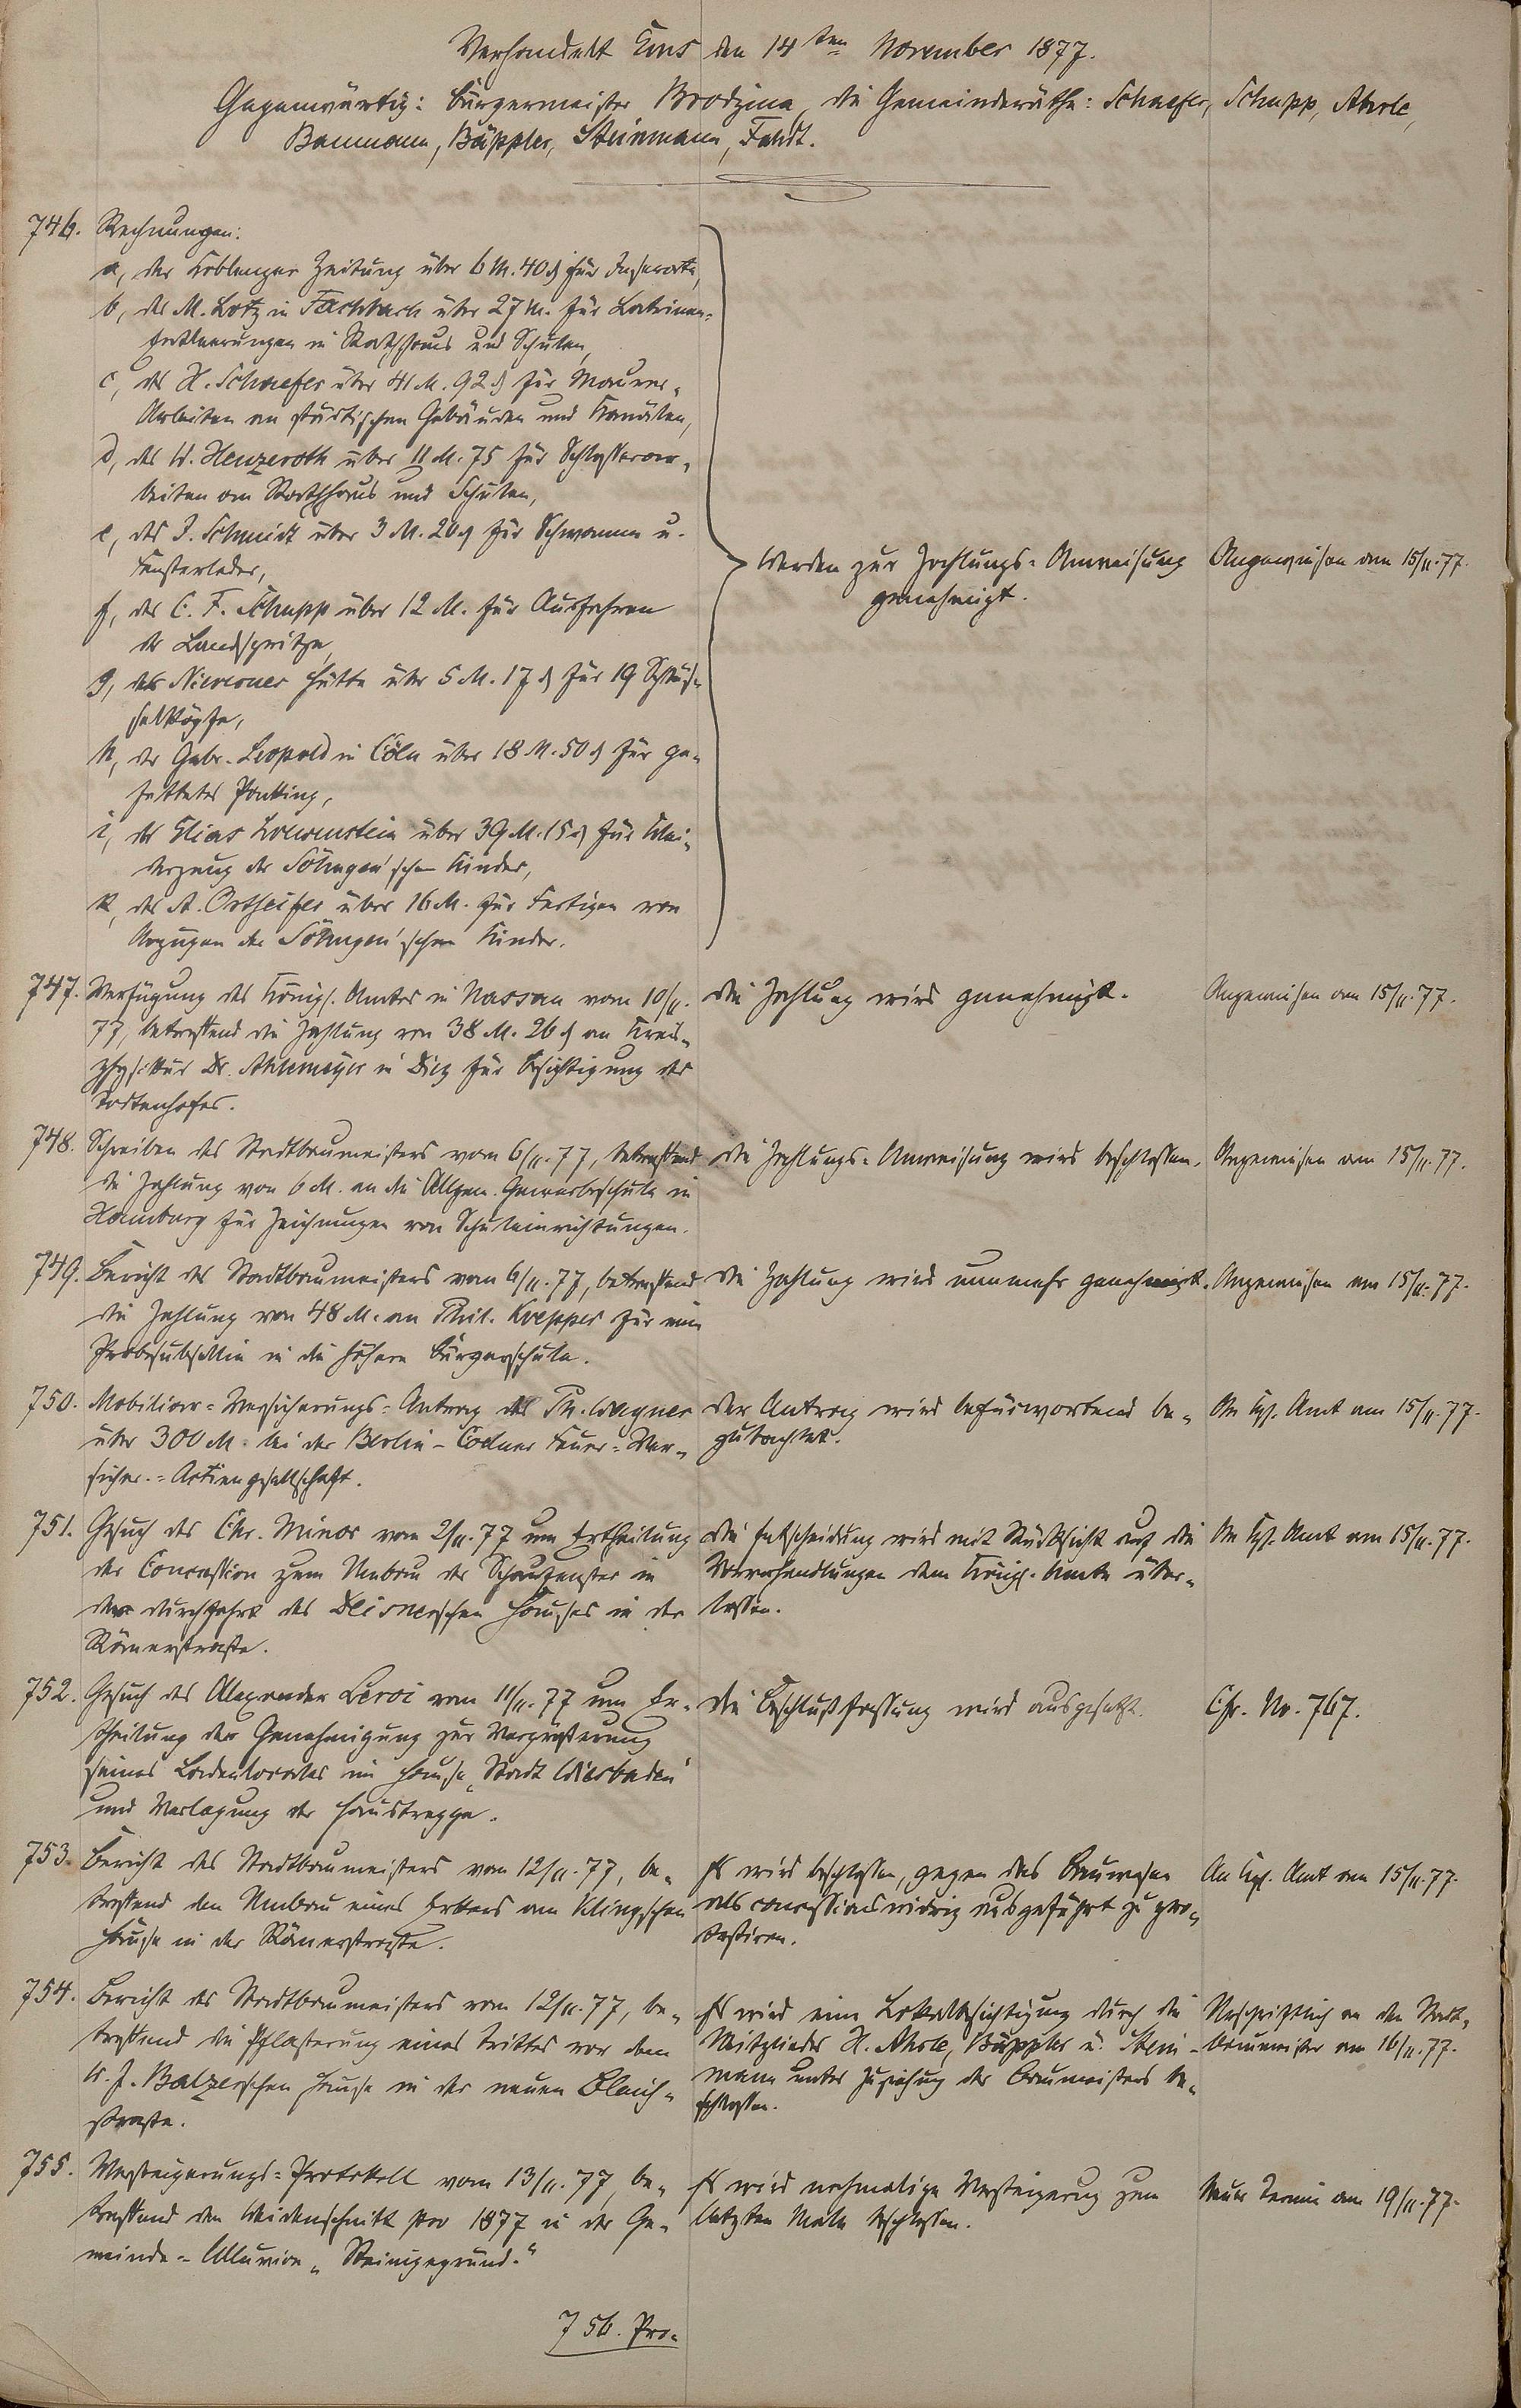 Verhandelt Ems den 14ten November 1877.
Gegenwärtig: Bürgermeister Brodzina, die Gemeinderäthe: Schaefer, Schupp, Ahrle,
Baumann, Büppler, Steinmann, Fahdt.
746. Rechnungen:
a, der Koblenzer Zeitung über 6 M. 40 ₰ für Inserate,
b, des M. Lotz in Fachbach über 27 M. für Latrinen-
Entleerungen in Rathhaus und Schulen,
c, des H. Schaefer über 41 M. 92 ₰ für Maurer-
Arbeiten an städtischen Gebäuden und Kanälen,
d, des W. Henzeroth über 11 M. 75 für Schlosserar-
beiten am Rathhaus und Schulen,
e, des J. Schmidt über 3 M. 20 ₰ für Schwamm u.
Fensterleder,
f, des C. F. Schupp über 12 M. für Ausfahren
der Landspritze,
g, der Nieverner Hütte über 5 M. 17 ₰ für 19 Schlüs-
selköpfe,
h, der Gebr. Leopold in Cöln über 18 M. 50 ₰ für ge-
fettetes Packing,
i, des Elias Loewenstein über 39 M. 15 ₰ für Klei-
derzeug der Söhngen'schen Kinder,
k, des A. Ortseifer über 16 M. für Fertigen von
Anzügen der Söhngen'schen Kinder.
Werden zur Zahlungs-Anweisung
genehmigt.
Angewiesen am 15/11. 77.
747. Verfügung des Königl. Amtes in Nassau vom 10/11.
77, betreffend die Zahlung von 38 M. 26 ₰ an Kreis-
physikus Dr. Ahlemeyer in Diez für Besichtigung des
Todtenhofes.
Die Zahlung wird genehmigt.
Angewiesen am 15/11. 77.
748. Schreiben des Stadtbaumeisters vom 6/11. 77, betreffend
die Zahlung von 6 M. an die Allgem. Gewerbeschule in
Hamburg für Zeichnungen von Schuleinrichtungen.
Die Zahlungs-Anweisung wird beschlossen.
Angewiesen am 15/11. 77.
749. Bericht des Stadtbaumeisters vom 6/11. 77, betreffend
die Zahlung von 48 M. an Phil. Krepper für eine
Probesubsellie in die höhere Bürgerschule.
Die Zahlung wird nunmehr genehmigt.
Angewiesen am 15/11. 77.
750. Mobiliar-Versicherungs-Antrag des Th. Wagner
über 300 M. bei der Berlin-Coelner Feuer-Ver-
sicher.-Actiengesellschaft.
Der Antrag wird befürwortend be-
gutachtet.
An Kgl. Amt am 15/11. 77.
751. Gesuch des Chr. Minor vom 2/11. 77 um Ertheilung
der Concession zum Umbau der Schaufenster in
der Durchfahrt des Deisnerschen Hauses in der
Römerstraße.
Die Entscheidung wird mit Rücksicht auf die
Vorverhandlungen dem Königl. Amte über-
lassen.
An Kgl. Amt am 15/11. 77.
752. Gesuch des Alexander Leroi vom 11/11. 77 um Er-
theilung der Genehmigung zur Vergrößerung
seines Ladenlocales im Hause „Stadt Wiesbaden"
und Verlegung der Haustreppe.
Die Beschlußfassung wird ausgesetzt.
Cfr. No. 767.
753. Bericht des Stadtbaumeisters vom 12/11. 77, be-
treffend den Umbau eines Erkers am Klingschen
Hause in der Römerstraße.
Es wird beschlossen, gegen das Bauwesen
als concessionswidrig ausgeführt zu pro-
testiren.
An Kgl. Amt am 15/11. 77.
754. Bericht des Stadtbaumeisters vom 12/11. 77, be-
treffend die Pflasterung eines Trittes vor dem
W. J. Balzerschen Hause in der neuen Bleich-
straße.
Es wird eine Lokalbesichtigung durch die
Mitglieder H. Ahrle, Büppler u. Stein-
mann unter Zuziehung des Baumeisters be-
schlossen.
Urschriftlich an den Stadt-
baumeister am 16/11. 77.
755. Versteigerungs-Protokoll vom 13/11. 77, be-
treffend den Weidenschnitt pro 1877 in der Ge-
meinde-Alluvion „Steinzegrund."
Es wird nochmalige Versteigerung zum
letzten Male beschlossen.
Neuer Termin am 19/11. 77.
756. Pro-